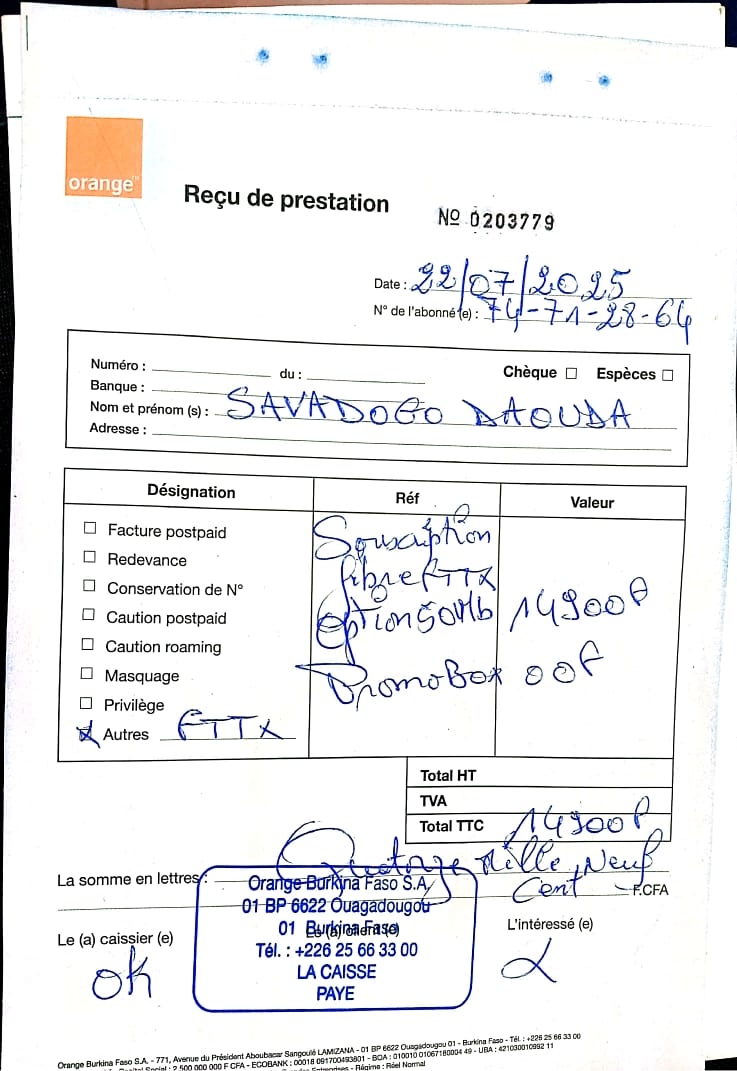 orange™
Reçu de prestation
Nº 0203779
Date : 22/07/2025
N° de l'abonné(e) : 74-71-28-64
Numéro : du : Chèque ☐ Espèces ☐
Banque :
Nom et prénom (s) : SAVADOGO DAOUDA
Adresse :
Désignation Réf Valeur
☐ Facture postpaid Souscription
☐ Redevance fibre FTTX
☐ Conservation de N°
☐ Caution postpaid Option 50Mb 14900F
☐ Caution roaming
☐ Masquage PromoBox 00F
☐ Privilège
☒ Autres FTTX
Total HT
TVA
Total TTC 14900F
La somme en lettres : Quatorze Mille Neuf
Cent F.CFA
Orange Burkina Faso S.A
01 BP 6622 Ouagadougou
01 Burkina Faso
Tél. : +226 25 66 33 00
LA CAISSE
PAYE
Le (a) caissier (e) L'intéressé (e)
ok
Orange Burkina Faso S.A. - 771, Avenue du Président Aboubacar Sangoulé LAMIZANA - 01 BP 6622 Ouagadougou 01 - Burkina Faso - Tél. : +226 25 66 33 00
Capital Social : 2 500 000 000 F CFA - ECOBANK : 00018 091700493801 - BOA : 010010 01067180004 49 - UBA : 421030010992 11
Entreprises - Régime : Réel Normal